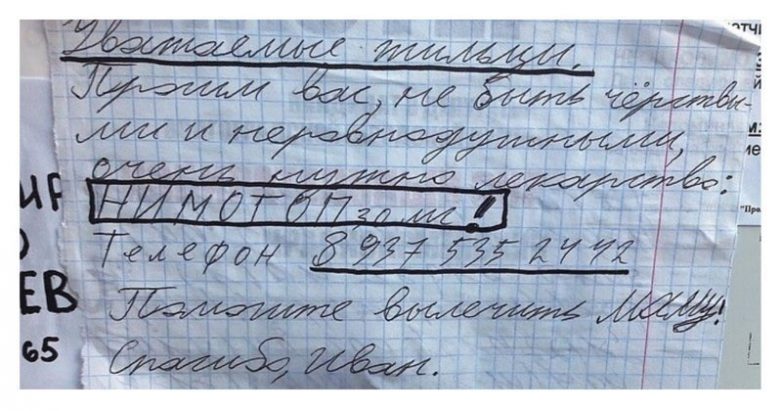 Уважаемые жильцы.
Просим вас, не быть чёрствы-
ми и неравнодушными,
очень нужно лекарство:
НИМОТОП 30 мг!
Телефон 8 937 535 24 42
Помогите вылечить маму!
Спасибо, Иван.
ЕВ
65